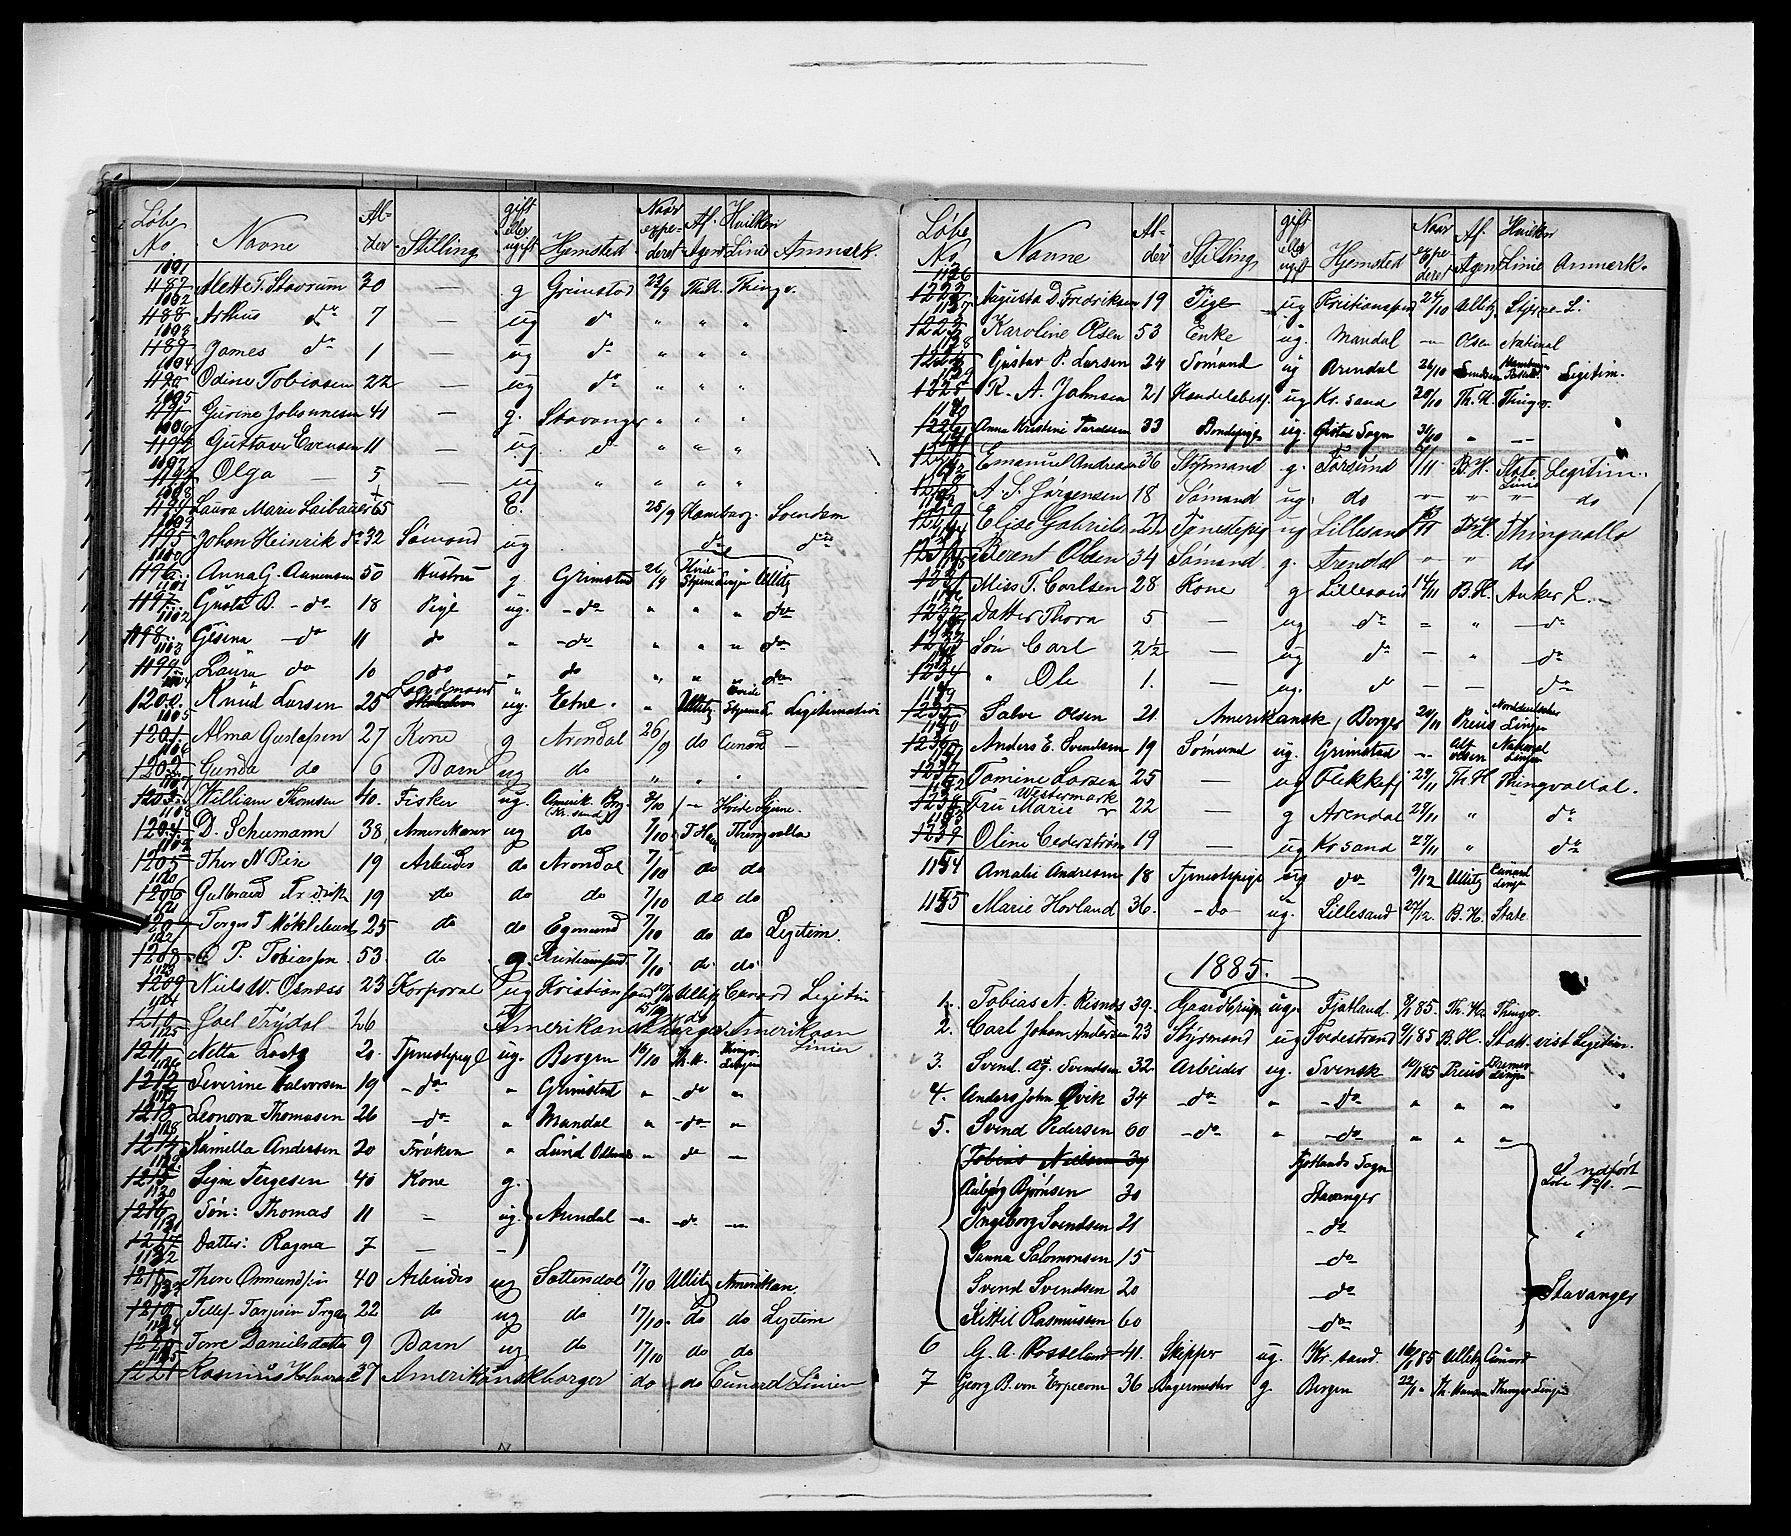 Løbe No. Navne Alder Stilling gift eller ugift Hjemsted Naar expederet Af Agent Hvilken Linie Anmærk.
1091 1187 Mette T. Stavrum 30 — g Grimstad 22/9 Th.H. Thingv.
1092 1188 Arthus do 7 — ug do " " "
1093 1189 James do 1 — ug do " " "
1094 1190 Odine Tobiasen 22 — ug do " " "
1095 1191 Gurine Johannesen 41 — g. Stavanger " " "
1096 1192 Gustava Evensen 11 — ug d " " "
1097 1193 Olga — 5 — ug " " " "
1098 1194 Laura Marie 65 E. 25/9 Hamburg. Svendsen
1099 1195 Johan Heinrik do 32 Sømand ug do do
1100 1196 Anna G. Aanensen 50 Hustru g Grimstad 26/9 Hvide Stjerne Linje Ullitz
1101 1197 Gusta B. -do- 18 Pige ug. -do " " " do
1102 1198 Gesina -do 11 do " -do " " " do
1103 1199 Laura do 10 do " do " " " do
1104 1200 Knud Larsen 25 Landmand ug. Etne " Ullitz Hvide Stjerne L Legitimation
1105 1201 Alma Gustafsen 27 Kone g Arendal 26/9 do Cunard —
1106 1202 Gunda do 6 Barn ug do " " "
1107 1203 William Thomsen 40. Fisker ug. Amerik. Brg (Kr.sand) 3/10 — Hvide Stjerne.
1108 1204 D. Schumann 38, Amerikaner ug do 7/10 T Han Thingvalla
1109 1205 Thor N Rise 19 Arbeider do Arendal 7/10 do do
1120 1206 Gulbrand Fredrik 19 do do do 7/10 do do
1121 1207 Torger T 25 do do Egmund 7/10 do do Legitim.
1122 1208 O P. Tobiassen 53 do g. Kristiansand 7/10 do do
1123 1209 Niels W. Osnæss 23 Korporal ug Kristiansand Ullitz Cunard Legitim
1124 1210 Joel Trydal 26 Amerikansk Borger do Amerikaan Linien
1125 1211 Netta 20. Tjenestepige ug. Bergen 16/10 Th.H. Thingv. Linjen
1126 1212 Severine Halvorsen 19 -do- " Grimstad " -do "
1127 1213 Leonora Thomasen 26 -do- " Mandal " -do- "
1128 1214 Kamilla Andersen 20 Frøken " Lund " do —
1129 1215 Signe Tergesen 40 Kone g.
1130 1216 Søn: Thomas 11 — ug. Arendal " -do- "
1131 1217 Datter: Ragna 7 — —
1132 1218 Thore Onmundsen 40 Arbeider ug Sættersdal 17/10 Ullitz Amerikan.
1133 1219 Tellef Tarjesen 22 do ug do 17/10 do do Legitim
1134 1220 Torre Danielsdatter 9 Barn ug do 17/10 do do
1135 1221 Rasmus Halvorsen 37 Amerikanskborger do do Cunard Linien
Løbe No. Navne Alder Stilling gift eller ugift Hjemsted Naar expederet Af Agent Hvilken Linie Anmærk.
1136 1222 Augusta D. Fredriksen 19 Pige ug Kristianssand 24/10 Ullitz Stjerne L.
1137 1223 Karoline Olsen 53 Enke ug. Mandal — Olsen National
1138 1224 Gustav P. Larsen 24 Sømand ug Arendal 26/10 Svendsen Legitim.
1139 1225 R. A. Johnsen 21 Handelsbesj. ug Kr.sand 28/10 Th. H. Thingv.
1140 1226 Anna Kristine 33 Bondepige ug. Sogn 31/10 " —
Emanuel Andreasen 36 Styrmand g. Farsund /11 B.H. State Linie Legitim.
A. S. Jørgensen 18 Sømand ug. do " " " do
Elise Gabriels 22 Tjenestepig ug Lillesand /11 Th.H. Thingvalla
Berent Olsen 34 Sømand g. Arendal " " do
1231 Miss T. Carlsen 28 Kone g Lillesand 14/11 B.H. Anker L.
1232 Datter Thora 5 — ug do " " -do
1233 Søn Carl 2½ — ug do — " -do
1234 " Ole 1. — ug. do — — do
1149 1235 Salve Olsen 21. Amerikansk Borger 20/11 Preus Norddeutscher Linje
1150 1236 Anders E. Svendsen 19 Sømand ug. Grimstad — Alf. Olsen National Linjen
1237 Tomine Larsen 25 — ug Flekkef. 29/11 Th.H Thingvallal.
1152 1238 Fru Marie Westermark 22 — g Arendal 29/11 " do
1153 1239 Oline Cederstrøm 19 — ug Kr sand 29/11 " do
1154 Amalie Andresen 18 Tjenestepige ug do 9/12 Ullitz Cunard Linje
1155 Marie Hovland 36. -do- ug. Lillesand 27/12. B.H. State
1885.
1. Tobias N. Risnæs 39. Gaardbruger ug. Fjotland. 8/1 85. Th. Ha. Thingv.
2. Carl Johan Andersen 23 Styrmand ug Tvedestrand 9/1 85 B.H. Statt. vist Legitim.
3. Svend. Aug. Svendsen 32 Arbeider ug. Svensk 10/1 85 Preus Bremer Linje
4. Anders John Øvik 34 -do- " -do- " " "
5. Svend Pedersen 60 -do- " -do- " " "
Tobias Nielsen 39 Fjotlands Sogn Indført Løbe No 1. —
Asbjørg Bjørnsen 30 Stavanger
Ingeborg Svendsen 21 -do- "
Sanna Salomonsen 15 -do-
Svend Svendsen 20 -do- Stavanger
Kittil Rasmussen 60 -do-
6 G. A. Rosseland 41. Skipper ug. Kr. sand. 16/1 85 Ullitz Cunard
7 Georg B. von Erpecom 36 Bagermester g. Bergen 22/1 " Th. Hansen Thingv. Linje